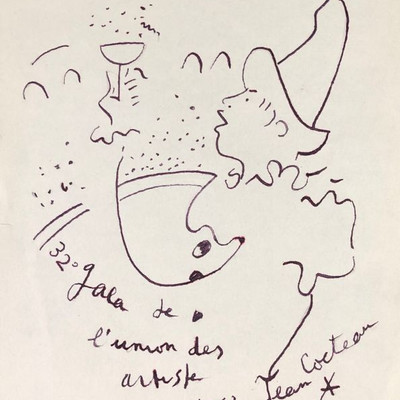 32º gala de
l'union des
artiste
Jean Cocteau